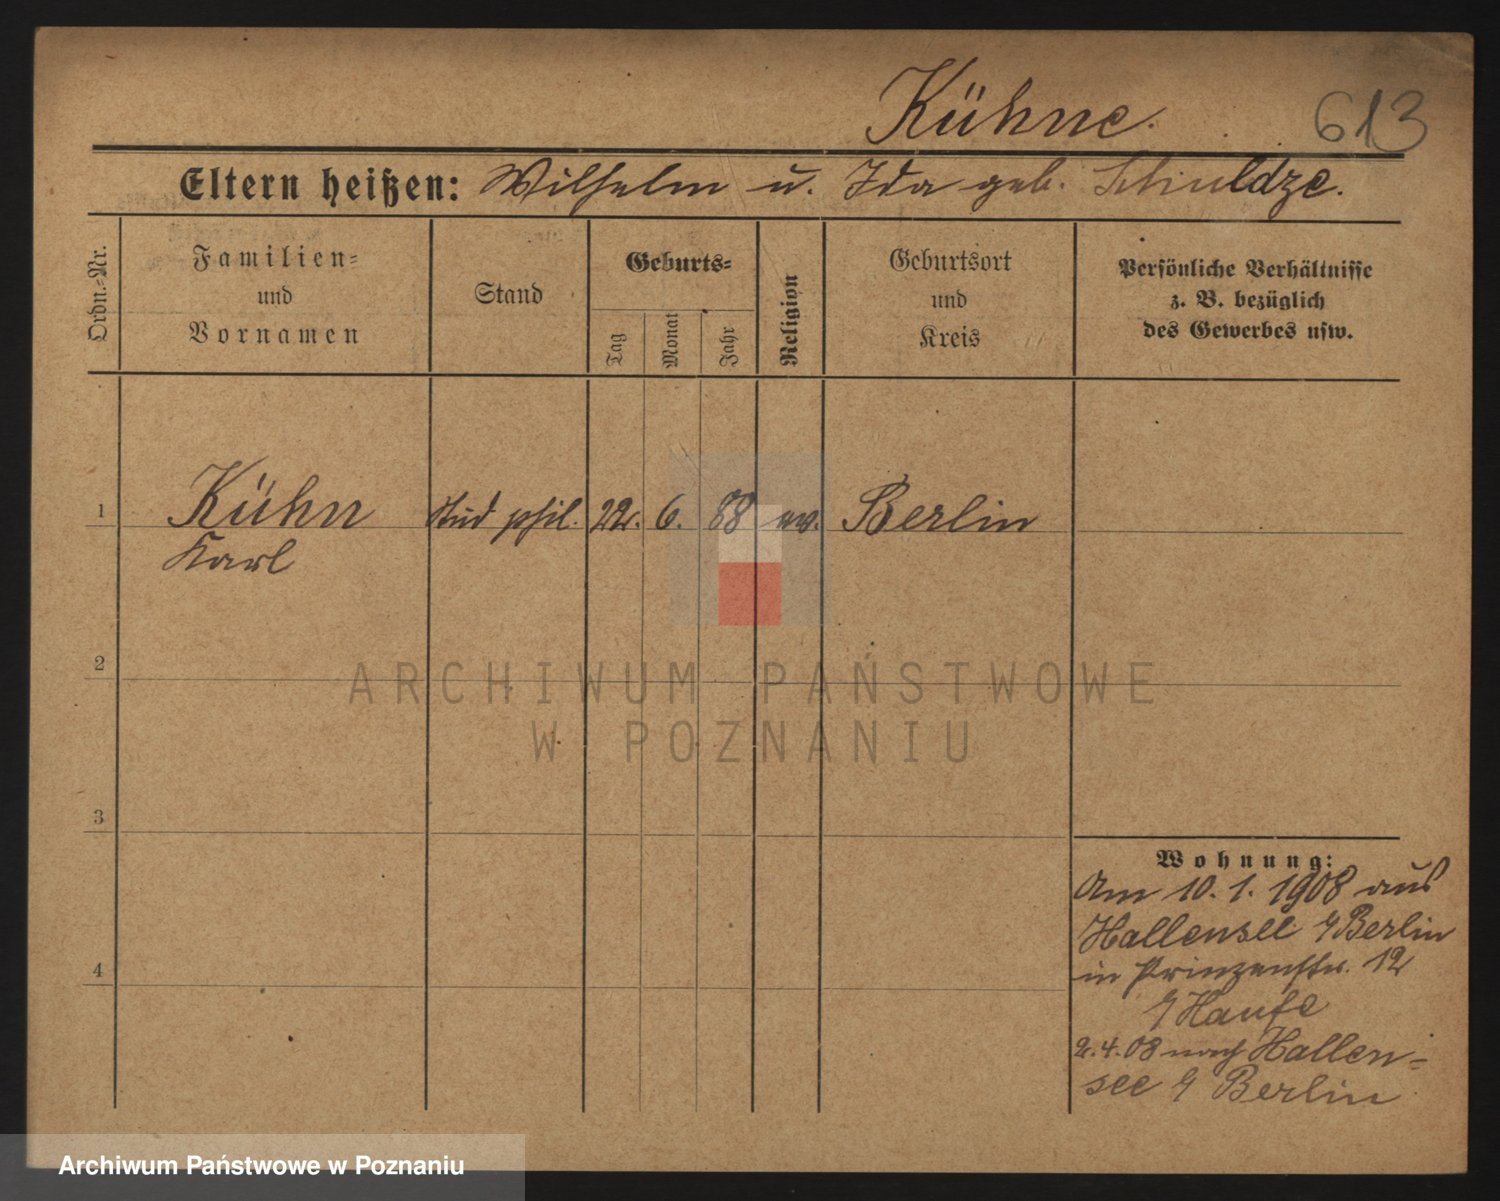 Kühne. 613
Eltern heißen: Wilhelm u. Ida geb. Schuldze.
Ordn.-Nr.
Familien-
und
Vornamen
Stand
Geburts-
Tag
Monat
Jahr
Religion
Geburtsort
und
Kreis
Persönliche Verhältnisse
z. B. bezüglich
des Gewerbes usw.
1 Kühn stud phil. 22. 6. 88 ev. Berlin
Karl
2
ARCHIWUM PAŃSTWOWE
W POZNANIU
3
Wohnung:
Am 10. 1. 1908 aus
Hallensee b/Berlin
4
in Prinzenstr. 12
b/Haufe
2.4.08 nach Hallen-
see b/ Berlin
Archiwum Państwowe w Poznaniu